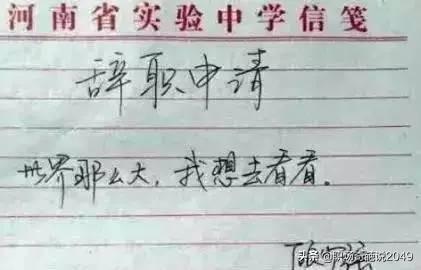 河南省实验中学信笺
辞职申请
世界那么大，我想去看看。
头条@职场奇葩说2049